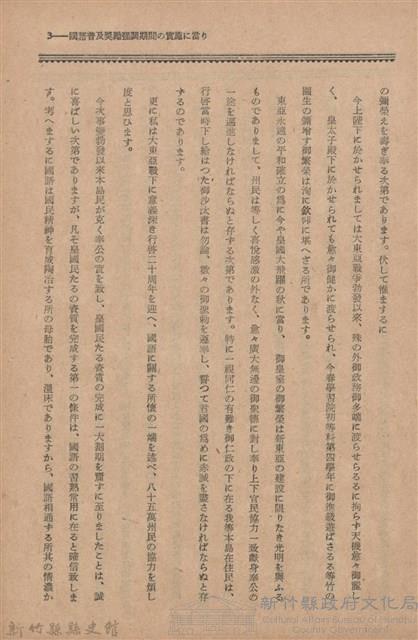 3――國語普及奬勵强調期間の實施に當り
の彌榮えを壽ぎ奉る次第であります。伏して惟まするに
今上陛下に於かせられましては大東亞戰爭勃發以來、殊の外御政務御多端に渡らせらるるに拘らず天機愈々御麗し
く、皇太子殿下に於かせられても愈々御健かに渡らせられ、今春學習院初等科第四學年に御進級遊ばさるる等竹の
園生の彌增す御繁榮は洵に欽仰に堪へざる所であります。
東亞永遠の平和確立の爲に今や皇國大飛躍の秋に當り、御皇室の御繁榮は新東亞の建設に限りなき光明を與ふる
ものでありまして、州民は等しく喜悅感激の外なく、愈々廣大無邊の御聖德に對し奉り上下官民協力一致獻身奉公の
一途を邁進しなければならぬと存する次第であります。特に一視同仁の有難き御仁政の下に在る我等本島在住民は、
行啓當時下し給はつた御沙汰書は勿論、數々の御懿勅を遵奉し、誓つて君國の爲めに赤誠を盡さなければならぬと存
するのであります。
更に私は大東亞戰下に意義深き行啓二十周年を迎へ、國語に關する所懷の一端を述べ、八十五萬州民の協力を煩し
度と思ひます。
今次事變勃發以來本島民が克く奉公の實を致し、皇國民たる資質の完成に一大劃期を齎すに至りましたことは、誠
に喜ばしい次第でありますが、凡そ皇國民たるの資質を完成する第一の條件は、國語の習熟常用に在ると確信致しま
す。考へまするに國語は國民精神を育成陶冶する所の母胎であり、溫床でありますから、國語相通する所其の情濃か
新竹縣縣史館
新竹縣政府文化局
Cultural Affairs Bureau, Hsinchu County Government